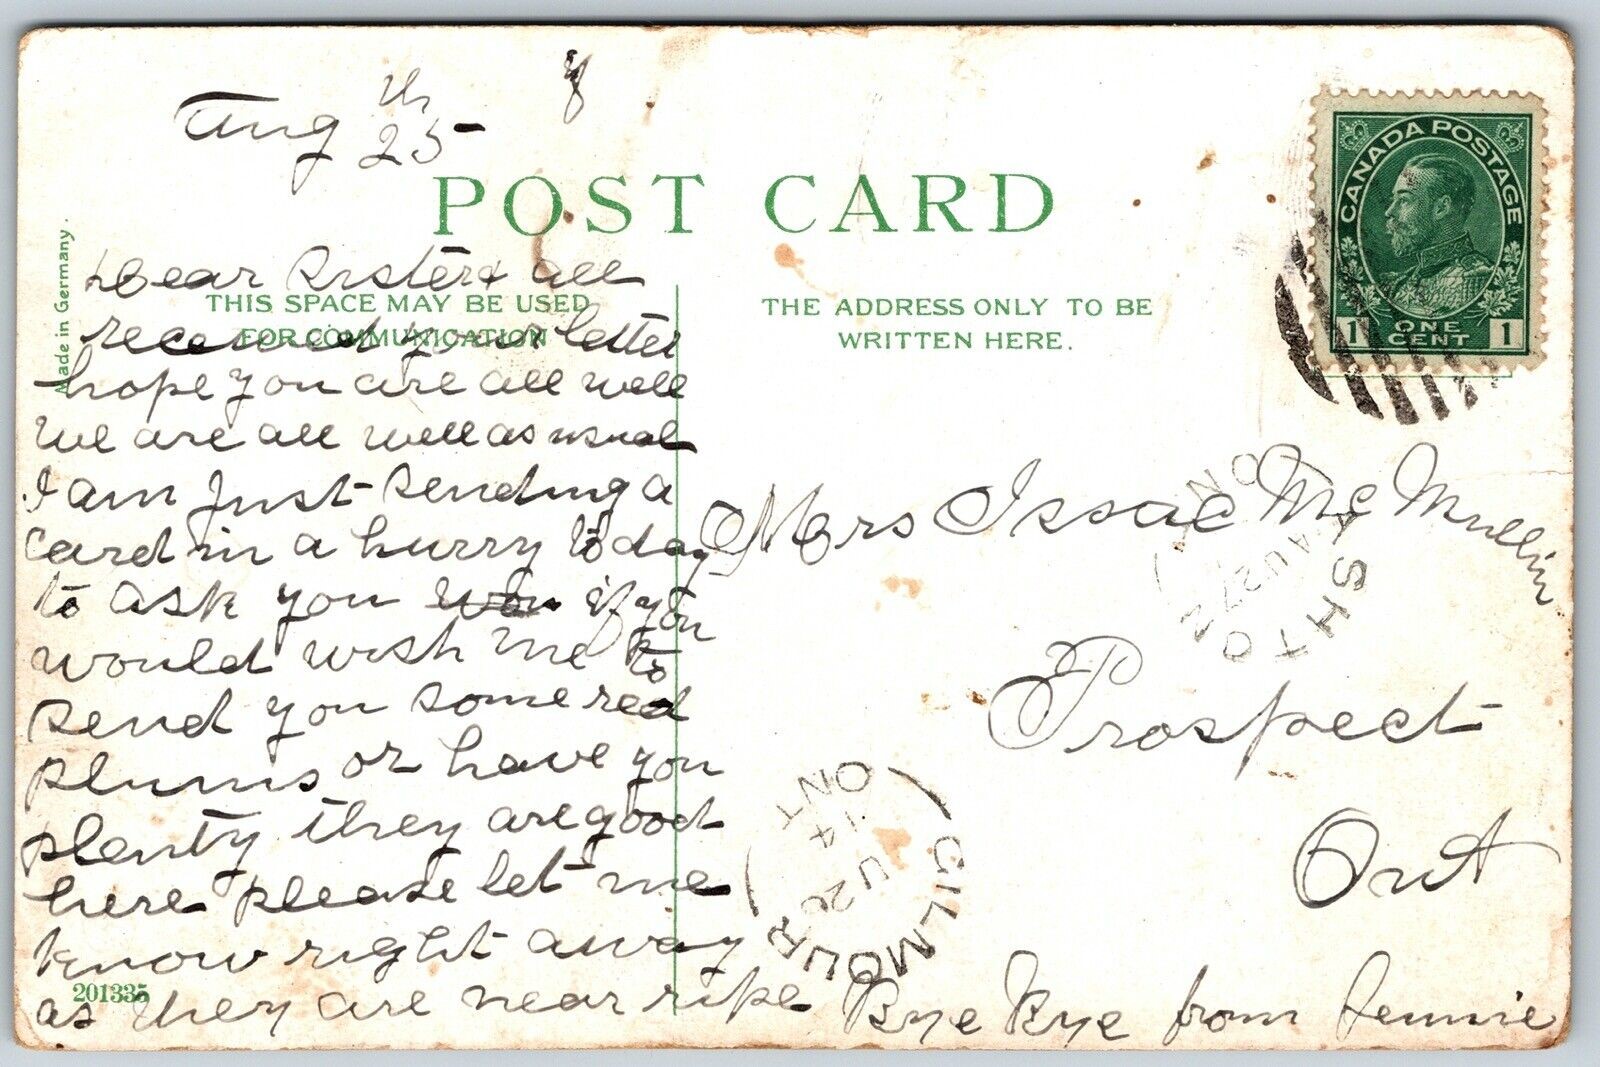 Aug 25th
POST CARD
Made in Germany.
THIS SPACE MAY BE USED
FOR COMMUNICATION
THE ADDRESS ONLY TO BE
WRITTEN HERE.
CANADA POSTAGE
1 ONE CENT 1
Dear Sister & all
received your letter
hope you are all well
we are all well as usual
I am just sending a
card in a hurry to day
to ask you if you
would wish me to
send you some red
plums or have you
plenty they are good
here please let me
know right away
as they are near ripe
Bye Bye from Jennie
Mrs Issac McMullin
Prospect
Ont
ASHTON ONT
AU 27
GILMOUR ONT
AU 26
14
201335